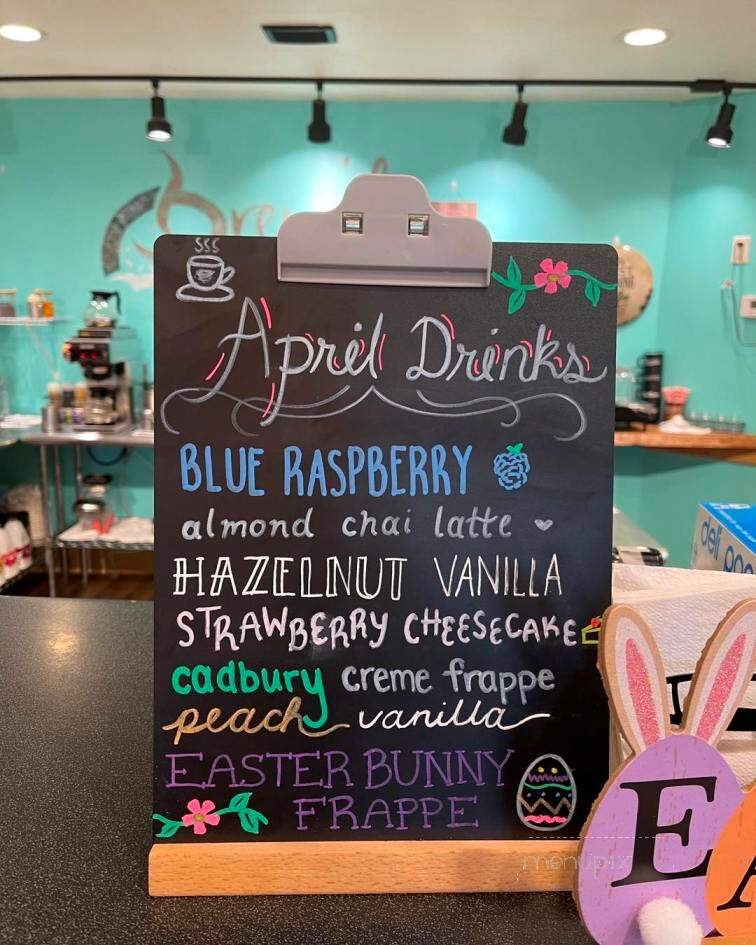 April Drinks
BLUE RASPBERRY
almond chai latte
HAZELNUT VANILLA
STRAWBERRY CHEESECAKE
cadbury creme frappe
peach vanilla
EASTER BUNNY
FRAPPE
menupix
E
deli